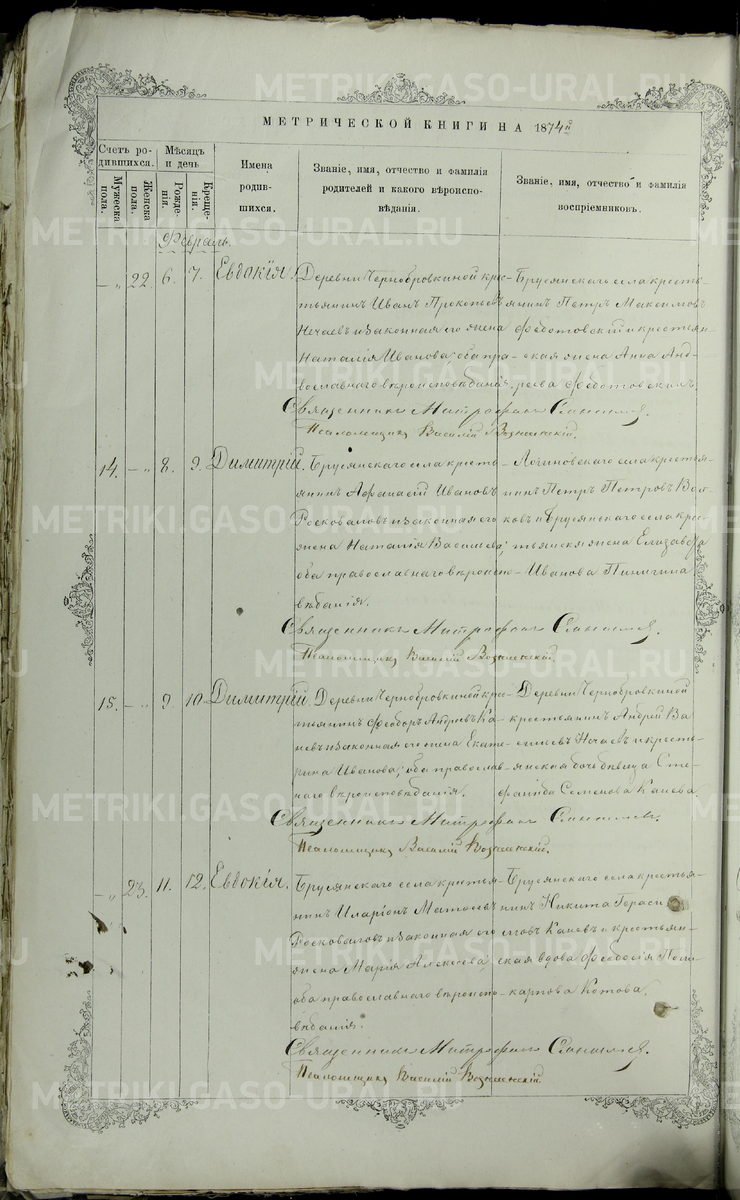 METRIKI.GASO-URAL.RU
МЕТРИЧЕСКОЙ КНИГИ НА 1874й
Счетъ родившихся.
Мужеска пола.
Женска пола.
Мѣсяцъ и день
Рожденія.
Крещенія.
Имена родившихся.
Званіе, имя, отчество и фамилія
родителей и какого вѣроиспо-
вѣданія.
Званіе, имя, отчество и фамилія
воспріемниковъ.
Февраль.
— „ 22. 6. 7. Евдокія.
Деревни Чернобровкиной крес-
тьянинъ Иванъ Прокопьевъ
Нечаевъ и законная его жена
Наталія Иванова; оба пра-
вославнаго вѣроисповѣданія.
Брусянскаго села кресть-
янинъ Петръ Максимовъ
Федотовскій и крестьян-
ская жена Анна Анд-
реева Федотовскихъ
Священникъ Митрофанъ
Псаломщикъ Василій Вознесенскій.
14. — „ 8. 9. Димитрій.
Брусянскаго села кресть-
янинъ Афанасій Ивановъ
и законная его
жена Наталія Васильева;
оба православнаго вѣроиспо-
вѣданія.
Логиновскаго села крестья-
нинъ Петръ Петровъ
и Брусянскаго села кре-
стьянск жена Елизавета
Иванова Пинигина
Священникъ Митрофанъ
Псаломщикъ Василій Вознесенскій.
15. — „ 9. 10. Димитрій.
Деревни Чернобровкиной кре-
стьянинъ Феодоръ Андреевъ Ка-
невъ и законная его жена Екате-
рина Иванова; оба православ-
наго вѣроисповѣданія.
Деревни Чернобровкиной
крестьянинъ Андрей Ва
сильевъ Нечаевъ и кресть-
янская дочь девица Сте-
фанида Семенова Канева.
Священникъ Митрофанъ
Псаломщикъ Василій Вознесенскій.
— „ 23. 11. 12. Евдокія.
Брусянскаго села крестья-
нинъ Иларіонъ Матвеевъ
и законная его
жена Марія Алексеева;
оба православнаго вѣроиспо-
вѣданія.
Брусянскаго села крестья-
нинъ Никита Гераси
мовъ Каневъ и крестьян-
ская вдова Феодосія Поли-
карпова Котова.
Священникъ Митрофанъ
Псаломщикъ Василій Вознесенскій.